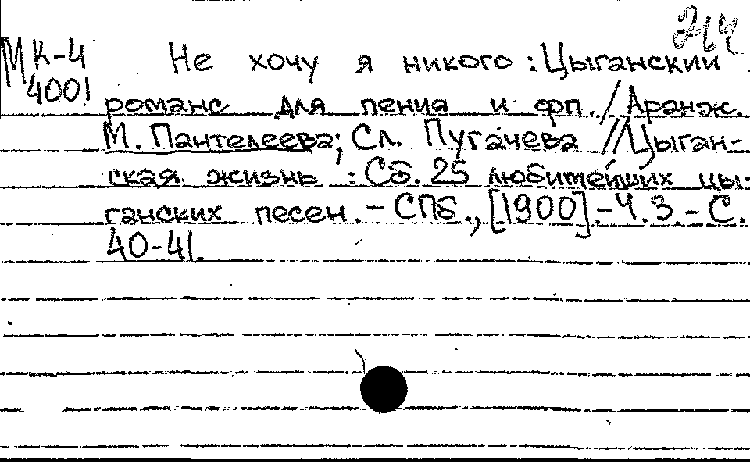 244
МК-4 Не хочу я никого : Цыганский
4001
романс для пения и фп. / Аранж.
М. Пантелеева; Сл. Пугачева // Цыган-
ская жизнь : Сб. 25 любитейших цы-
ганских песен. - СПб., [1900]. - Ч. 3. - С.
40-41.